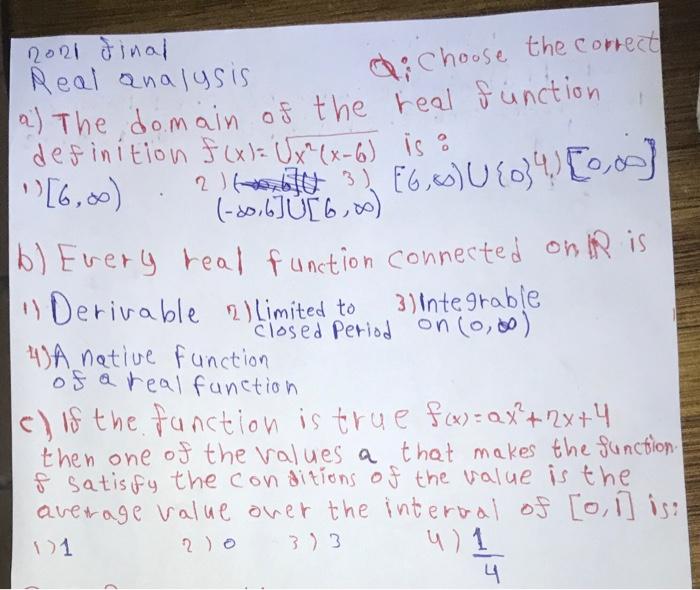 2021 final
Real analysis
Q: Choose the correct
a) The domain of the real function
definition f(x)=√x²(x-6) is:
1) [6,∞) 2) (-∞,6]U[6,∞) 3) [6,∞)U{0} 4) [0,∞]
b) Every real function connected on R is
1) Derivable 2) Limited to closed Period 3) Integrable on (0,∞)
4) A native function
of a real function
c) If the function is true f(x)=ax²+2x+4
then one of the values a that makes the function
f satisfy the conditions of the value is the
average value over the interval of [0,1] is:
1) 1 2) 0 3) 3 4) 1/4